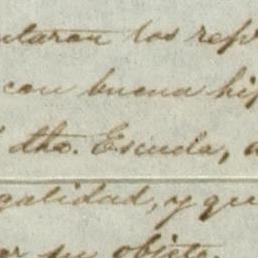 ntaron los rep
con buena hi
dho. Escuela,
galidad, y qu
er su objeto.